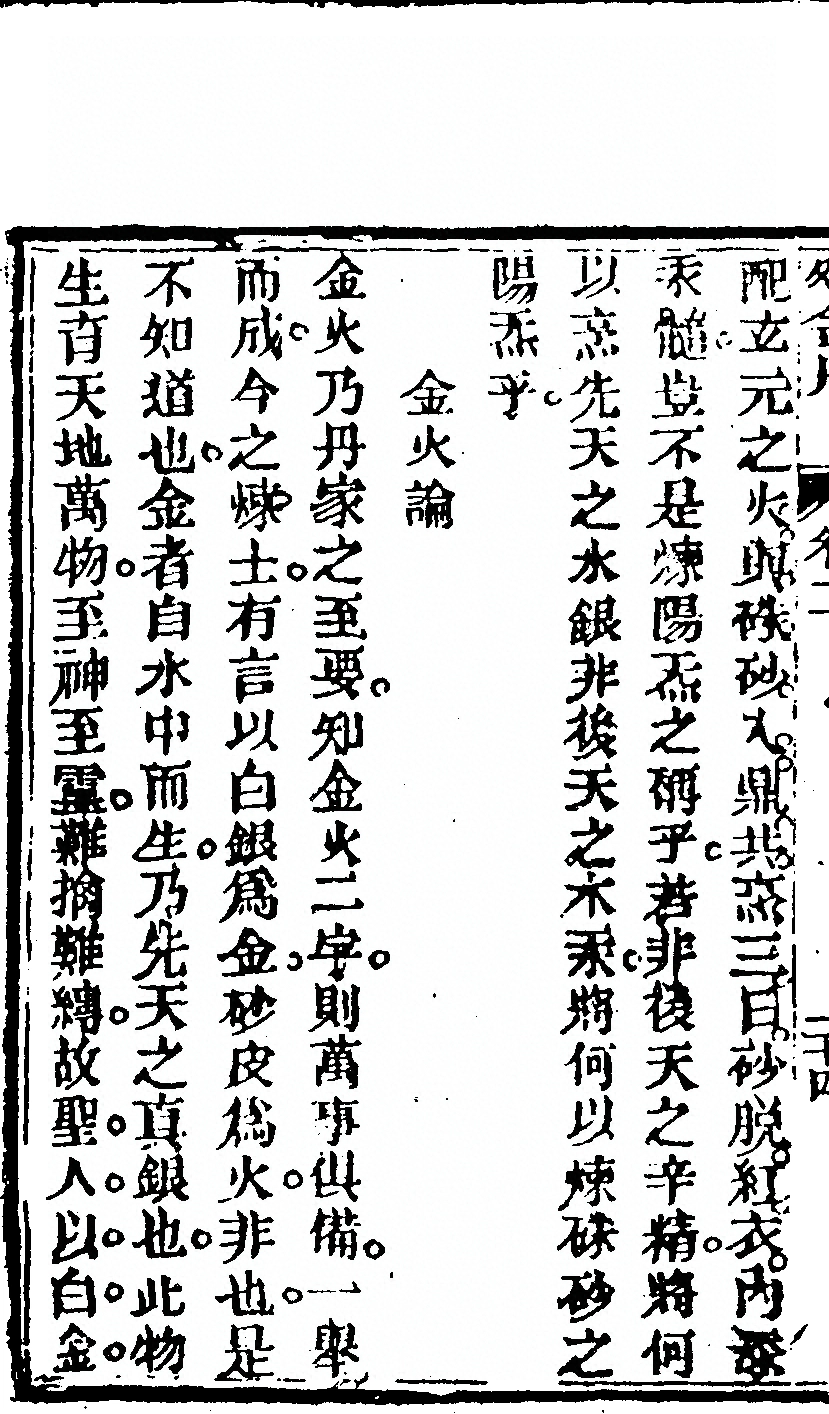 外金丹　卷二　二十四
配玄元之火與硃砂入鼎共烝三日砂脫紅衣內
汞髓。豈不是煉陽炁之稱乎。若非後天之辛精。將何
以烝先天之水銀非後天之木汞。將何以煉硃砂之
陽炁乎。
金火論
金火乃丹家之至要。知金火二字。則萬事俱備。一舉
而成。今之煉士。有言以白銀爲金。砂皮爲火。非也。是
不知道也。金者自水中而生。乃先天之真銀也。此物
生育天地萬物。至神至靈。難擒難縛。故聖。人。以。白。金。